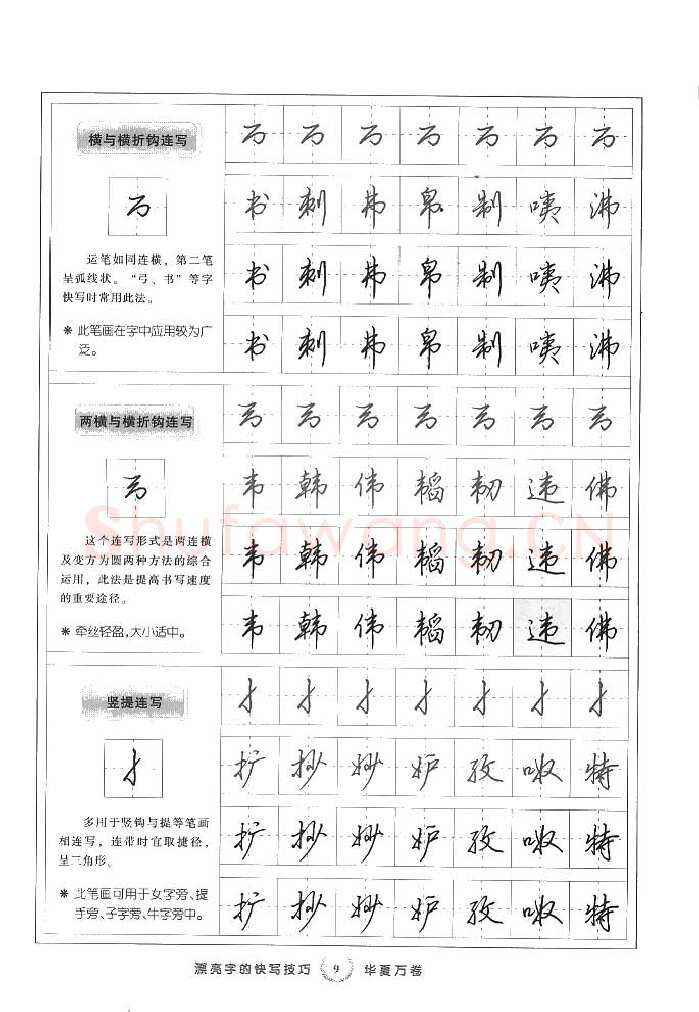 横与横折钩连写
运笔如同连横，第二笔
呈弧线状。“弓、书”等字
快写时常用此法。
＊此笔画在字中应用较为广
泛。
书 刺 弗 帛 制 咦 沸
书 刺 弗 帛 制 咦 沸
书 刺 弗 帛 制 咦 沸
两横与横折钩连写
这个连写形式是两连横
及变方为圆两种方法的综合
运用，此法是提高书写速度
的重要途径。
＊牵丝轻盈，大小适中。
韦 韩 伟 韬 韧 违 佛
韦 韩 伟 韬 韧 违 佛
韦 韩 伟 韬 韧 违 佛
Shufawang.CN
竖提连写
多用于竖钩与提等笔画
相连写。连带时宜取捷径，
呈三角形。
＊此笔画可用于女字旁、提
手旁、子字旁、牛字旁中。
扩 抄 妙 妒 孜 呶 特
扩 抄 妙 妒 孜 呶 特
扩 抄 妙 妒 孜 呶 特
漂亮字的快写技巧 9 华夏万卷